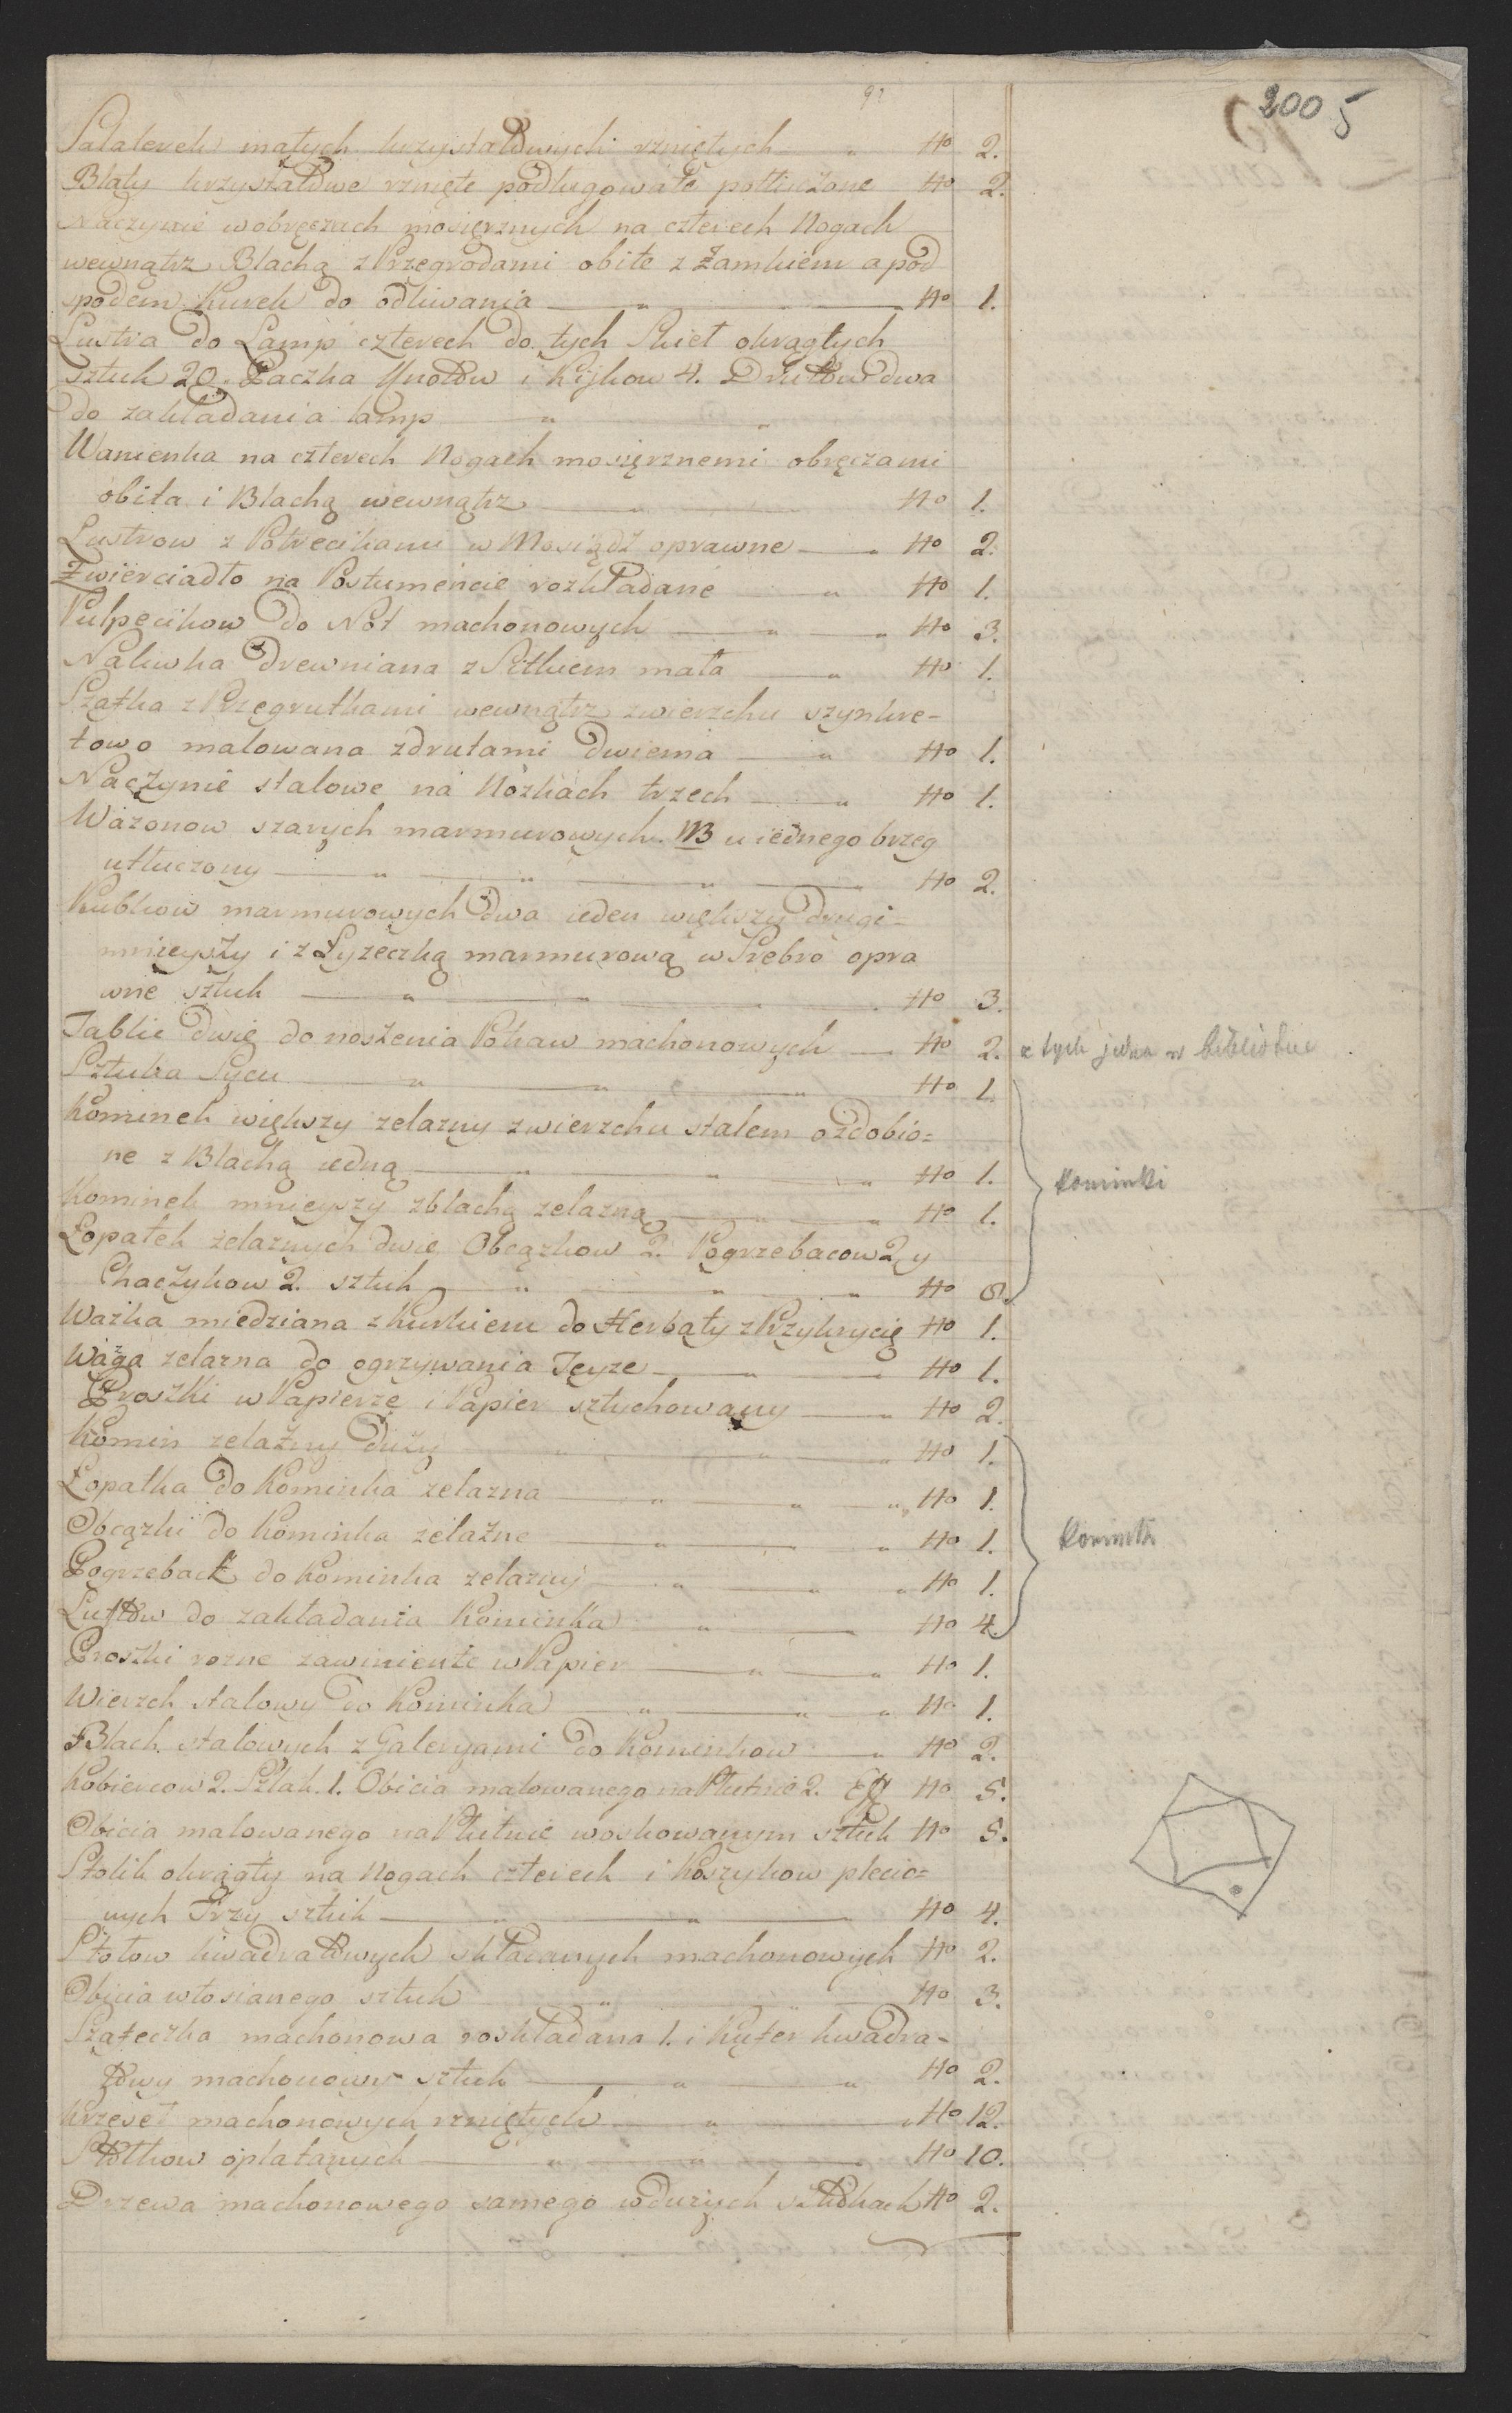 2005
Salaterek małych krzyształowych rzniętych " No 2.
Blaty krzyształowe rznięte podługowate potłużone No 2.
Naczynie wobręczach mosięznych na czterech Nogach
wewnątrz Blachą z Przegrodami obite z Zamkiem a pod
spodem Kurek do odliwania " No 1.
Lustra do Lamp czterech do tych Skiet okrągłych
sztuk 20. Paczka Knotow i Kijkow 4. Drutow dwa
do zakładania lamp " "
Wanienka na czterech Nogach mosięznemi obręczami
obita i Blachą wewnątrz " No 1.
Lustrow z Potrecikami w Mosiądz oprawne " No 2.
Zwierciadło na Postumencie rozkładane " No 1.
Pulpecikow do Not machonowych " " No 3.
Naliwka drewniana z Sitkiem mała " No 1.
Szafka z Przegrutkami wewnątrz zwierzchu szynkre-
towo malowana zdrutami dwiema " No 1.
Naczynie stalowe na Nożkach trzech " No 1.
Wazonow szarych marmurowych. NB u iednego brzeg
utłuczony " " " No 2.
Kubkow marmurowych dwa ieden większy drugi-
mnieyszy i z Łyzeczką marmurową w Srebro opra
wne sztuk " " No 3.
Tablic dwie do noszenia Potraw machonowych No 2. z tych jedna w bibliotece
Sztuka Sycu " " No 1.
Kominek większy zelazny zwierzchu stalem ozdobio=
ne z Blachą iedną " " " No 1.
kominki
Kominek mnieyszy zblachą zelazną " " No 1.
Łopatek żelaznych dwie Obcążkow 2. Pogrzebacow 2 y
Chaczykow 2. sztuk " " " No 8.
Wazka miedziana z Kurkiem do Herbaty z Przykrycię No 1.
Waza zelazna do ogrzywania Jeyze " " No 1.
Proszki w Papierze i Papier sztychowany " No 2.
Komin zelazny duży " " " No 1.
Łopatka do Kominka zelazna " " " No 1.
Obcązki do Kominka żelazne " " No 1.
kominek
Pogrzeback do Kominka zelazny " " " No 1.
Luftow do zakładania Kominka " No 4.
Proszki rozne zawiniente w Papier " " No 1.
Wierzch stalowy do Kominka " " " No 1.
Blach stalowych z Galeryami do Kominkow " No 2.
Kobiercow 2. Szlak. 1. Obicia malowanego na Płutnie 2. No 5.
Obicia malowanego na Płutnie woskowanym sztuk No 5.
Stolik okrągły na Nogach czterech i Koszykow plecio=
nych Trzy sztuk " " No 4.
Stołow kwadratowych składanych machonowych No 2.
Obicia włosianego sztuk " No 3.
Szafeczka machonowa roskładana 1. i Kufer kwadra-
towy machonowy sztuk " " No 2.
Krzeseł machonowych rzniętych " No 12.
Stołkow oplatanych " " No 10.
Drzewa machonowego samego wdużych sztukach No 2.